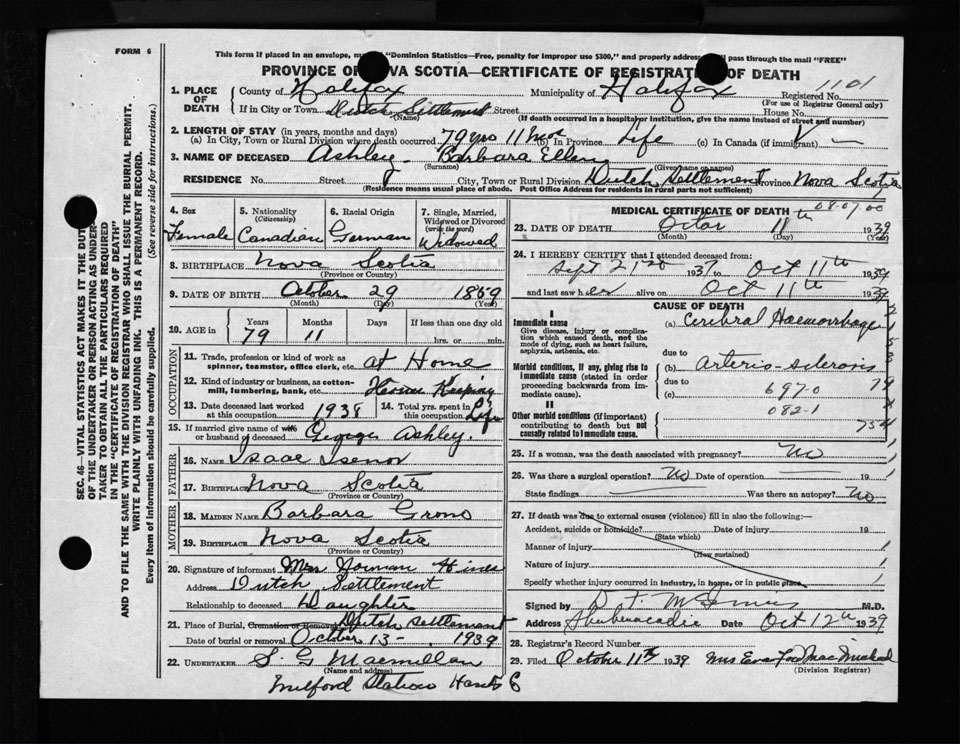 FORM 6
This form if placed in an envelope, "Dominion Statistics—Free, penalty for improper use $300," and properly address pass through the mail "FREE"
PROVINCE OF VA SCOTIA—CERTIFICATE OF REGISTRAT OF DEATH
1101
1. PLACE OF DEATH
County of Halifax Municipality of Halifax Registered No.
(For use of Registrar General only)
If in City or Town Dutch Settlement Street House No.
(Name) (If death occurred in a hospital or institution, give the name instead of street and number)
2. LENGTH OF STAY (in years, months and days)
(a) In City, Town or Rural Division where death occurred 79 yrs 11 mos (b) In Province Life (c) In Canada (if immigrant) —
3. NAME OF DECEASED Ashley - Barbara Ellen
(Surname) (Given name or names)
RESIDENCE No. Street City, Town or Rural Division Dutch Settlement Province Nova Scotia
(Residence means usual place of abode. Post Office Address for residents in rural parts not sufficient)
4. Sex
Female
5. Nationality
(Citizenship)
Canadian
6. Racial Origin
German
7. Single, Married, Widowed or Divorced
(write the word)
Widowed
8. BIRTHPLACE Nova Scotia
(Province or Country)
9. DATE OF BIRTH October 29 1859
(Month) (Day) (Year)
10. AGE in
Years Months Days If less than one day old
79 11 hrs. or min.
OCCUPATION
11. Trade, profession or kind of work as spinner, teamster, office clerk, etc. at Home
12. Kind of industry or business, as cotton-mill, lumbering, bank, etc. House Keeping
13. Date deceased last worked at this occupation 1938
14. Total yrs. spent in this occupation Life
15. If married give name of wife or husband of deceased George Ashley.
FATHER
16. NAME Isaac Isenor
17. BIRTHPLACE Nova Scotia
(Province or Country)
MOTHER
18. MAIDEN NAME Barbara Grono
19. BIRTHPLACE Nova Scotia
(Province or Country)
20. Signature of informant Mrs Norman Hines
Address Dutch Settlement
Relationship to deceased Daughter
21. Place of Burial, Cremation or Removal Dutch Settlement
Date of burial or removal October 13 - 1939
22. UNDERTAKER S. G Macmillan
(Name and address)
Milford Station Hants
MEDICAL CERTIFICATE OF DEATH
08-07-00
23. DATE OF DEATH 11th 1939
(Month) (Day) (Year)
24. I HEREBY CERTIFY that I attended deceased from:
Sept 21st 1937 to Oct 11th 1939
and last saw her alive on Oct 11th 1939
CAUSE OF DEATH
I
Immediate cause
Give disease, injury or complication which caused death, not the mode of dying, such as heart failure, asphyxia, asthenia, etc.
(a) Cerebral Haemorrhage
due to
Morbid conditions, if any, giving rise to immediate cause (stated in order proceeding backwards from immediate cause).
(b) Arterio-sclerosis
due to
(c) 697-0
79
082-1
II
Other morbid conditions (if important) contributing to death but not causally related to immediate cause.
25. If a woman, was the death associated with pregnancy? No
26. Was there a surgical operation? No Date of operation 19
State findings Was there an autopsy? No
27. If death was due to external causes (violence) fill in also the following:—
Accident, suicide or homicide? Date of injury 19
(State which)
Manner of injury
(How sustained)
Nature of injury
Specify whether injury occurred in industry, in home, or in public place
Signed by M.D.
Address Shubenacadie Date Oct 12th 1939
28. Registrar's Record Number
29. Filed October 11th 1939 Mrs Eva MacMichael
(Division Registrar)
SEC. 46—VITAL STATISTICS ACT MAKES IT THE DUT
OF THE UNDERTAKER OR PERSON ACTING AS UNDER
TAKER TO OBTAIN ALL THE PARTICULARS REQUIRED
IN THE "CERTIFICATE OF REGISTRATION OF DEATH"
AND TO FILE THE SAME WITH THE DIVISION REGISTRAR WHO SHALL ISSUE THE BURIAL PERMIT.
WRITE PLAINLY WITH UNFADING INK. THIS IS A PERMANENT RECORD.
Every item of information should be carefully supplied. (See reverse side for instructions.)